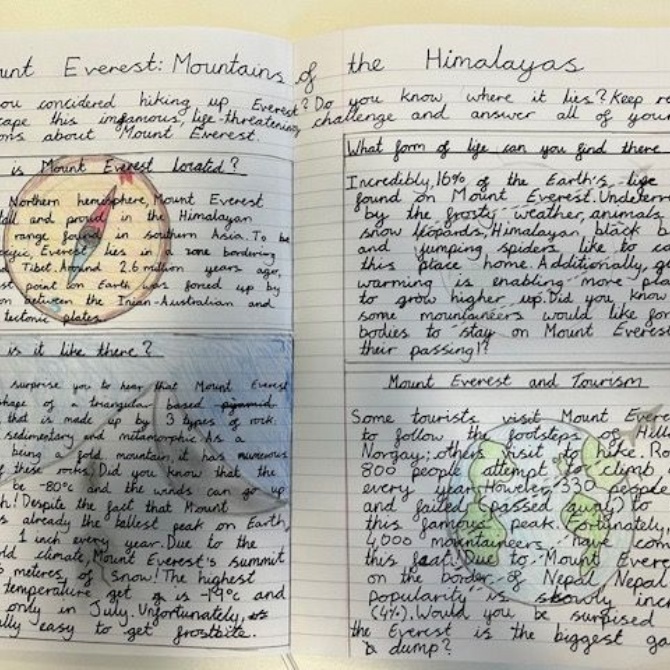 unt Everest: Mountains of the Himalayas
ou concidered hiking up Everest? Do you know where it lies? Keep re
cape this infamous, life-threatening challenge and answer all of your
ons about Mount Everest.
is Mount Everest Located?
Northern hemisphere, Mount Everest
tall and proud in the Himalayan
range found in southern Asia. To be
Everest lies in a zone bordering
d Tibet. Around 2.6 million years ago,
st point on Earth was fomed up by
on between the Inian-Australian and
tectonic plates.
is it like there?
surprise you to hear that Mount Everest
shape of a triangular based pyramid
that is made up by 3 types of rock.
sedimentary and metamorphic. As a
being a fold mountain, it has numerous
f these rocks. Did you know that the
be -80°c and the winds can go up
h! Despite the fact that Mount
s already the tallest peak on Earth,
1 inch every year. Due to the
old climate, Mount Everest's summit
metres of snow! The highest
temperature get is -19°c and
only in July. Unfortunately,
lly easy to get frostbite.
What form of life can you find there
Incredibly, 16% of the Earth's life
found on Mount Everest. Undeterr
by the frosty weather, animals
snow leopards, Himalayan black b
and jumping spiders like to ca
this place home. Additionally, gl
warming is enabling more pla
to grow higher up. Did you know
some mountaineers would like for
bodies to stay on Mount Everest
their passing!?
Mount Everest and Tourism
Some tourists visit Mount Ever
to follow the footsteps of Hill
Norgay; others visit to hike. Ro
800 people attempt to climb
every year. Howeler, 330 people
and failed (passed away) to
this famous peak. Fortunately,
4,000 mountaineers have com
this feat. Due to Mount Evere
on the border of Nepal, Nepal
popularity is slowly inc
(4%). Would you be surprised
the Everest is the biggest ga
dump?